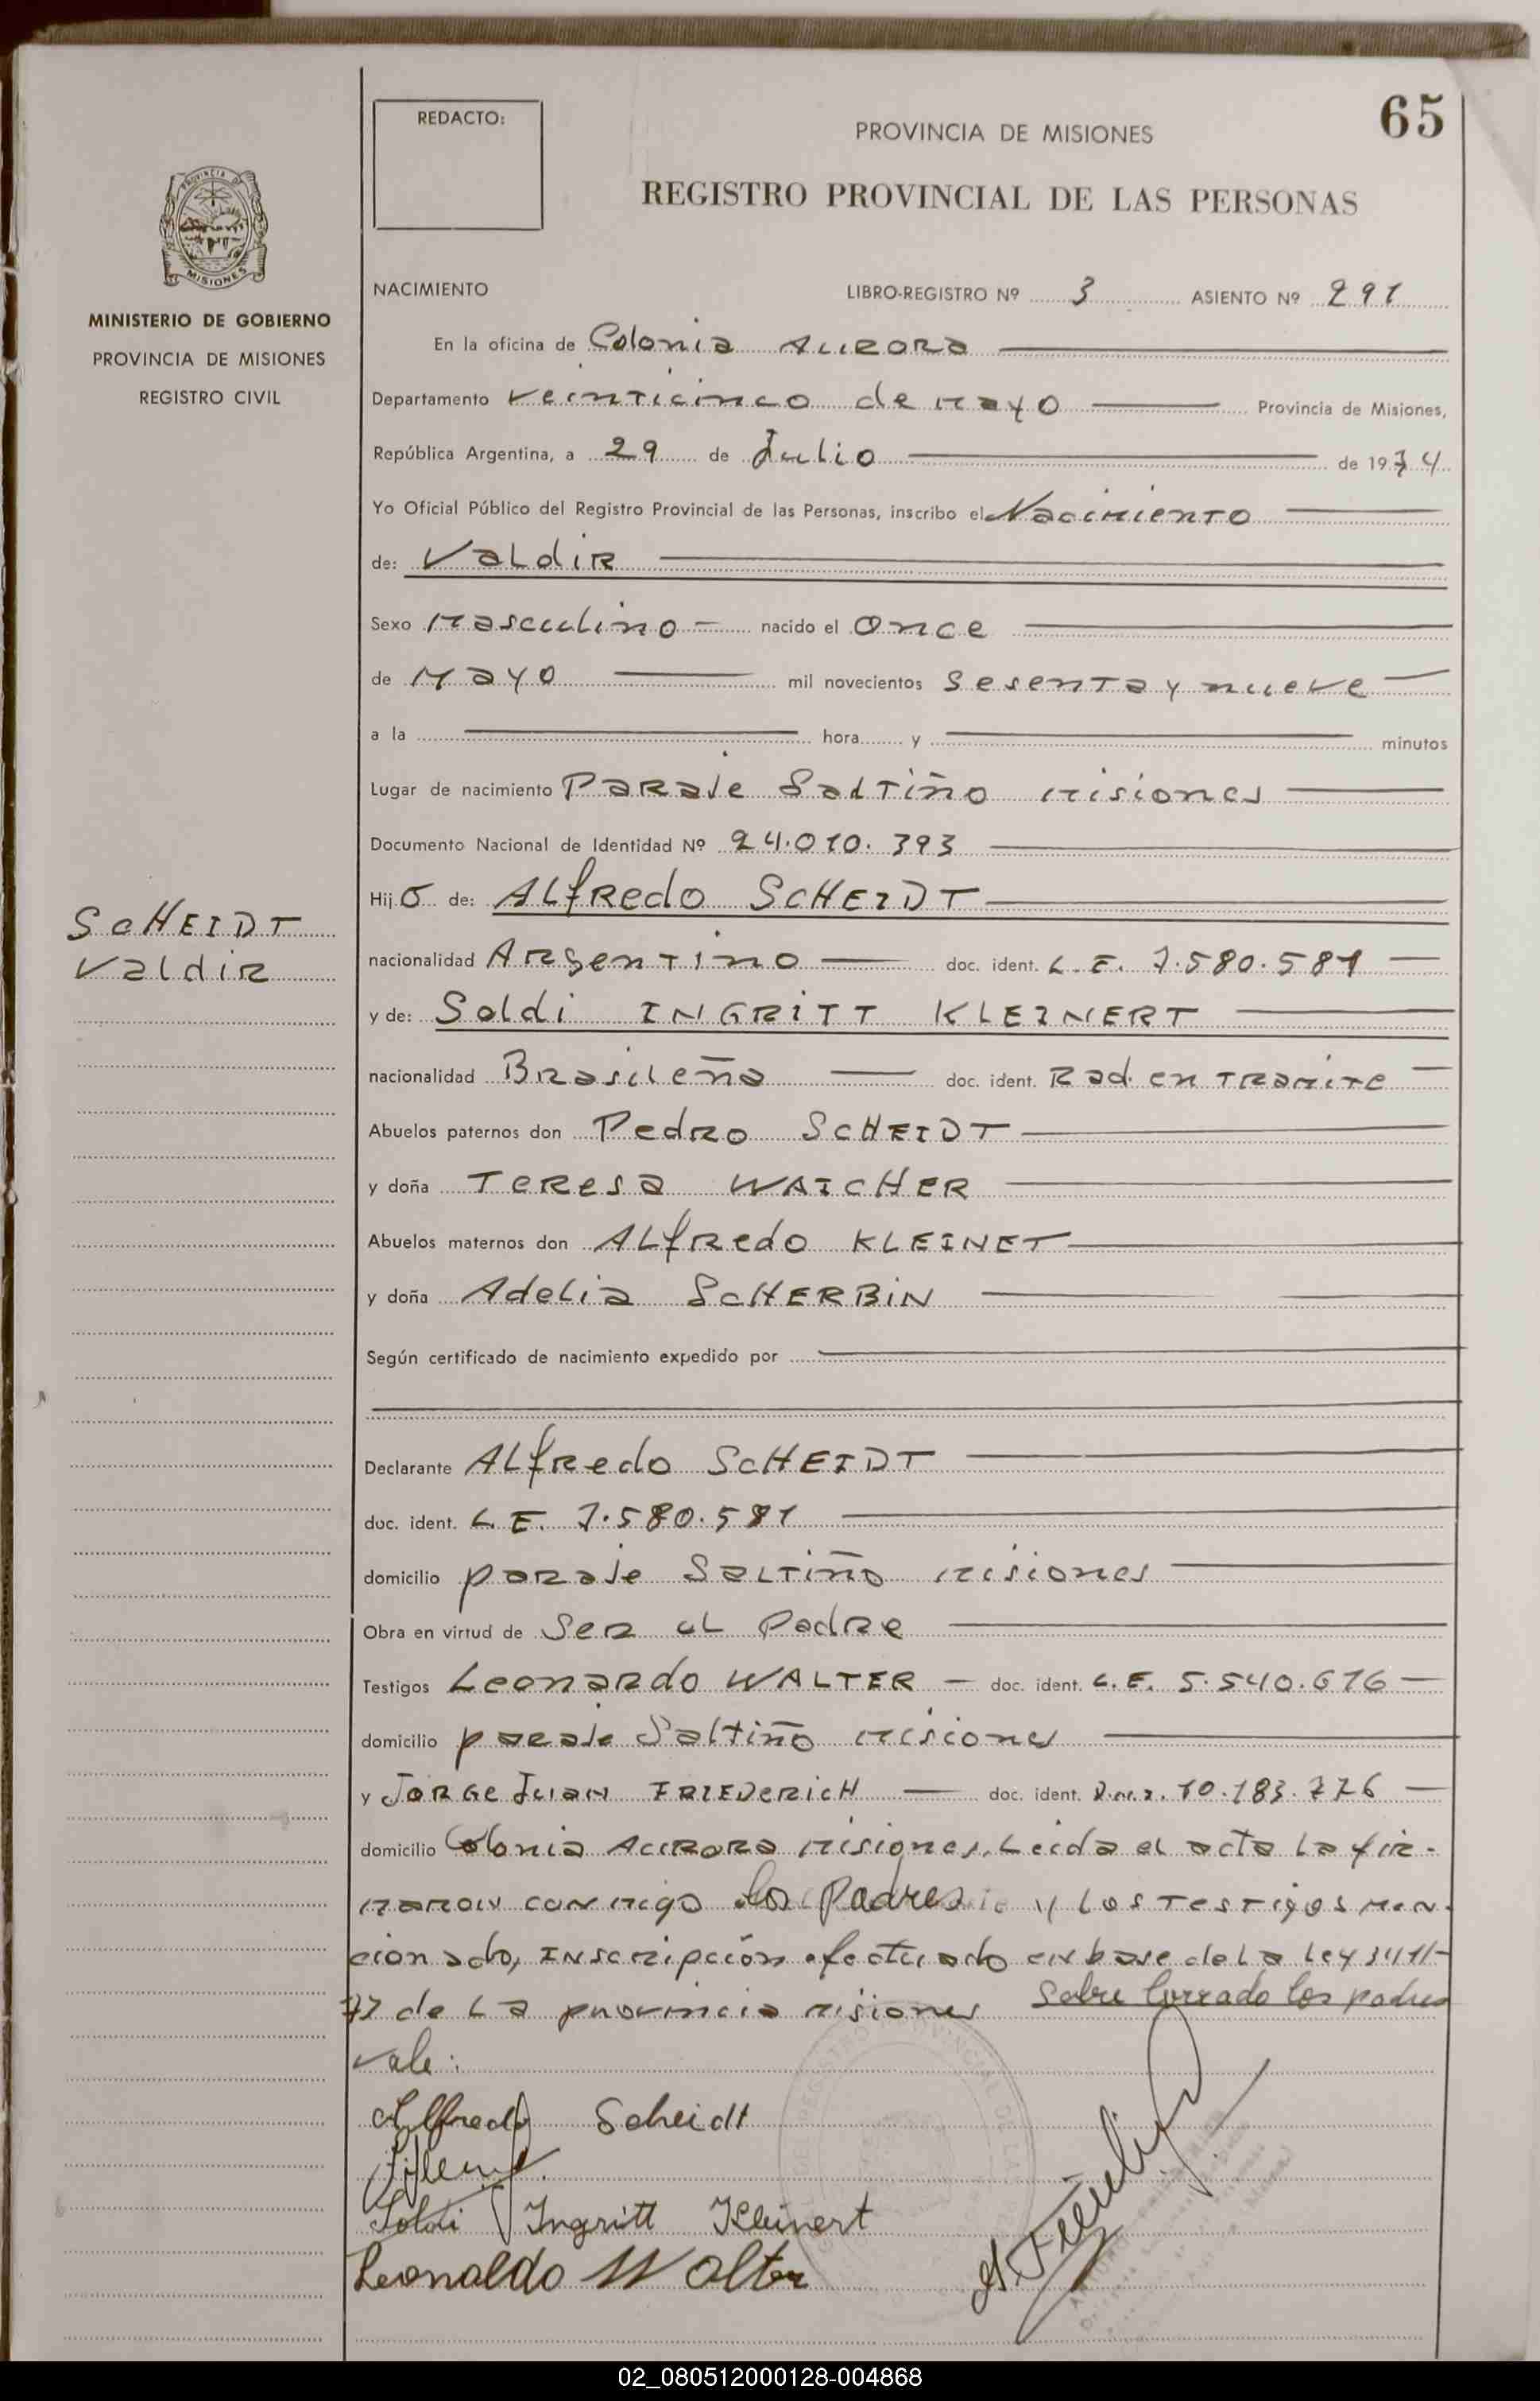 65
REDACTO:
PROVINCIA DE MISIONES
REGISTRO PROVINCIAL DE LAS PERSONAS
PROVINCIA DE
MISIONES
MINISTERIO DE GOBIERNO
PROVINCIA DE MISIONES
REGISTRO CIVIL
NACIMIENTO LIBRO-REGISTRO Nº 3 ASIENTO Nº 291
En la oficina de Colonia Aurora
Departamento veinticinco de mayo Provincia de Misiones,
República Argentina, a 29 de Julio de 1974
Yo Oficial Público del Registro Provincial de las Personas, inscribo el Nacimiento
de: Valdir
Sexo masculino nacido el Once
de Mayo mil novecientos sesenta y nueve
a la hora y minutos
Lugar de nacimiento Paraje Saltiño misiones
Documento Nacional de Identidad Nº 24.010.393
Hijo de: Alfredo SCHEIDT
SCHEIDT
Valdir
nacionalidad Argentino doc. ident. L.E. 7.580.581
y de: Soldi INGRITT KLEINERT
nacionalidad Brasileña doc. ident. Rad. en tramite
Abuelos paternos don Pedro SCHEIDT
y doña Teresa WAICHER
Abuelos maternos don Alfredo KLEINET
y doña Adelia SCHERBIN
Según certificado de nacimiento expedido por
Declarante Alfredo SCHEIDT
doc. ident. L.E. 7.580.581
domicilio paraje Saltiño misiones
Obra en virtud de ser el Padre
Testigos Leonardo WALTER doc. ident. L.E. 5.540.676
domicilio paraje Saltiño misiones
y Jorge Juan FRIEDERICH doc. ident. D.N.I. 10.183.776
domicilio Colonia Aurora misiones, Leida el acta la fir-
maron conmigo los Padres y los testigos men-
cionado, Inscripción efectuado en base de la Ley
77 de la provincia misiones Sobre borrado los padres
vale:
Alfredo Scheidt
Soldi Ingritt Kleinert
Leonaldo Walter
02_080512000128-004868